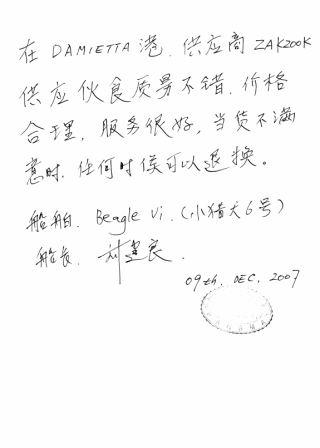 在 DAMIETTA 港. 供应商 ZAKZOOK
供应伙食质量不错. 价格
合理, 服务很好, 当货不满
意时. 任何时候可以退换。
船舶. Beagle Vi. (小猎犬6号)
船长.
09th. DEC, 2007